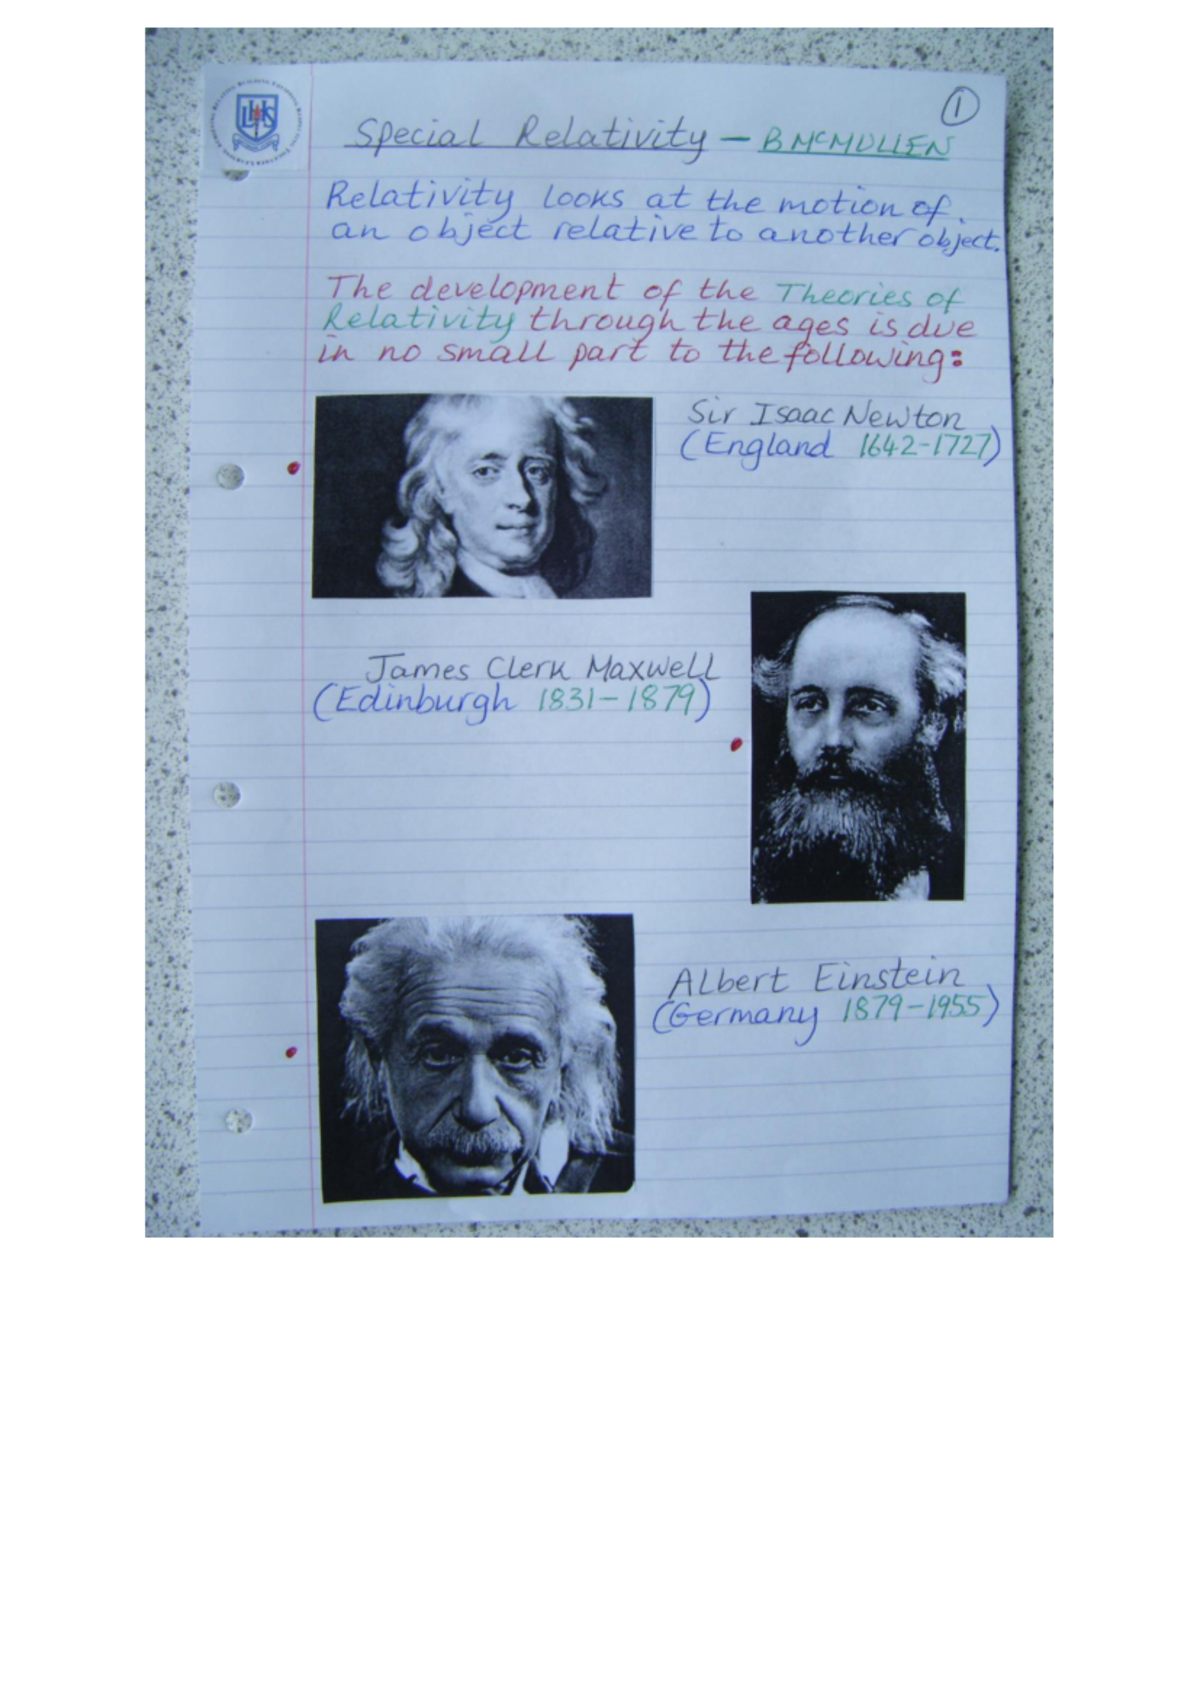 1
Special Relativity – B MCMULLEN
Relativity looks at the motion of
an object relative to another object.
The development of the Theories of
Relativity through the ages is due
in no small part to the following:
Sir Isaac Newton
(England 1642-1727)
James Clerk Maxwell
(Edinburgh 1831-1879)
Albert Einstein
(Germany 1879-1955)